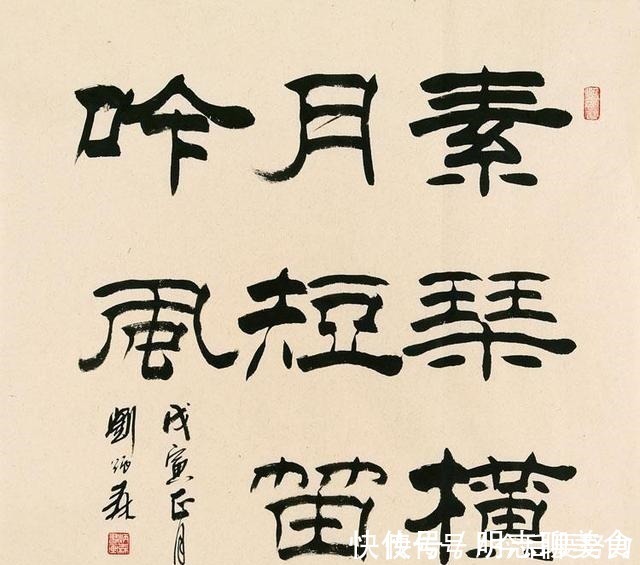 素琴橫
月短笛
吟風
戊寅正月
劉炳森
快传号 明志聊美食